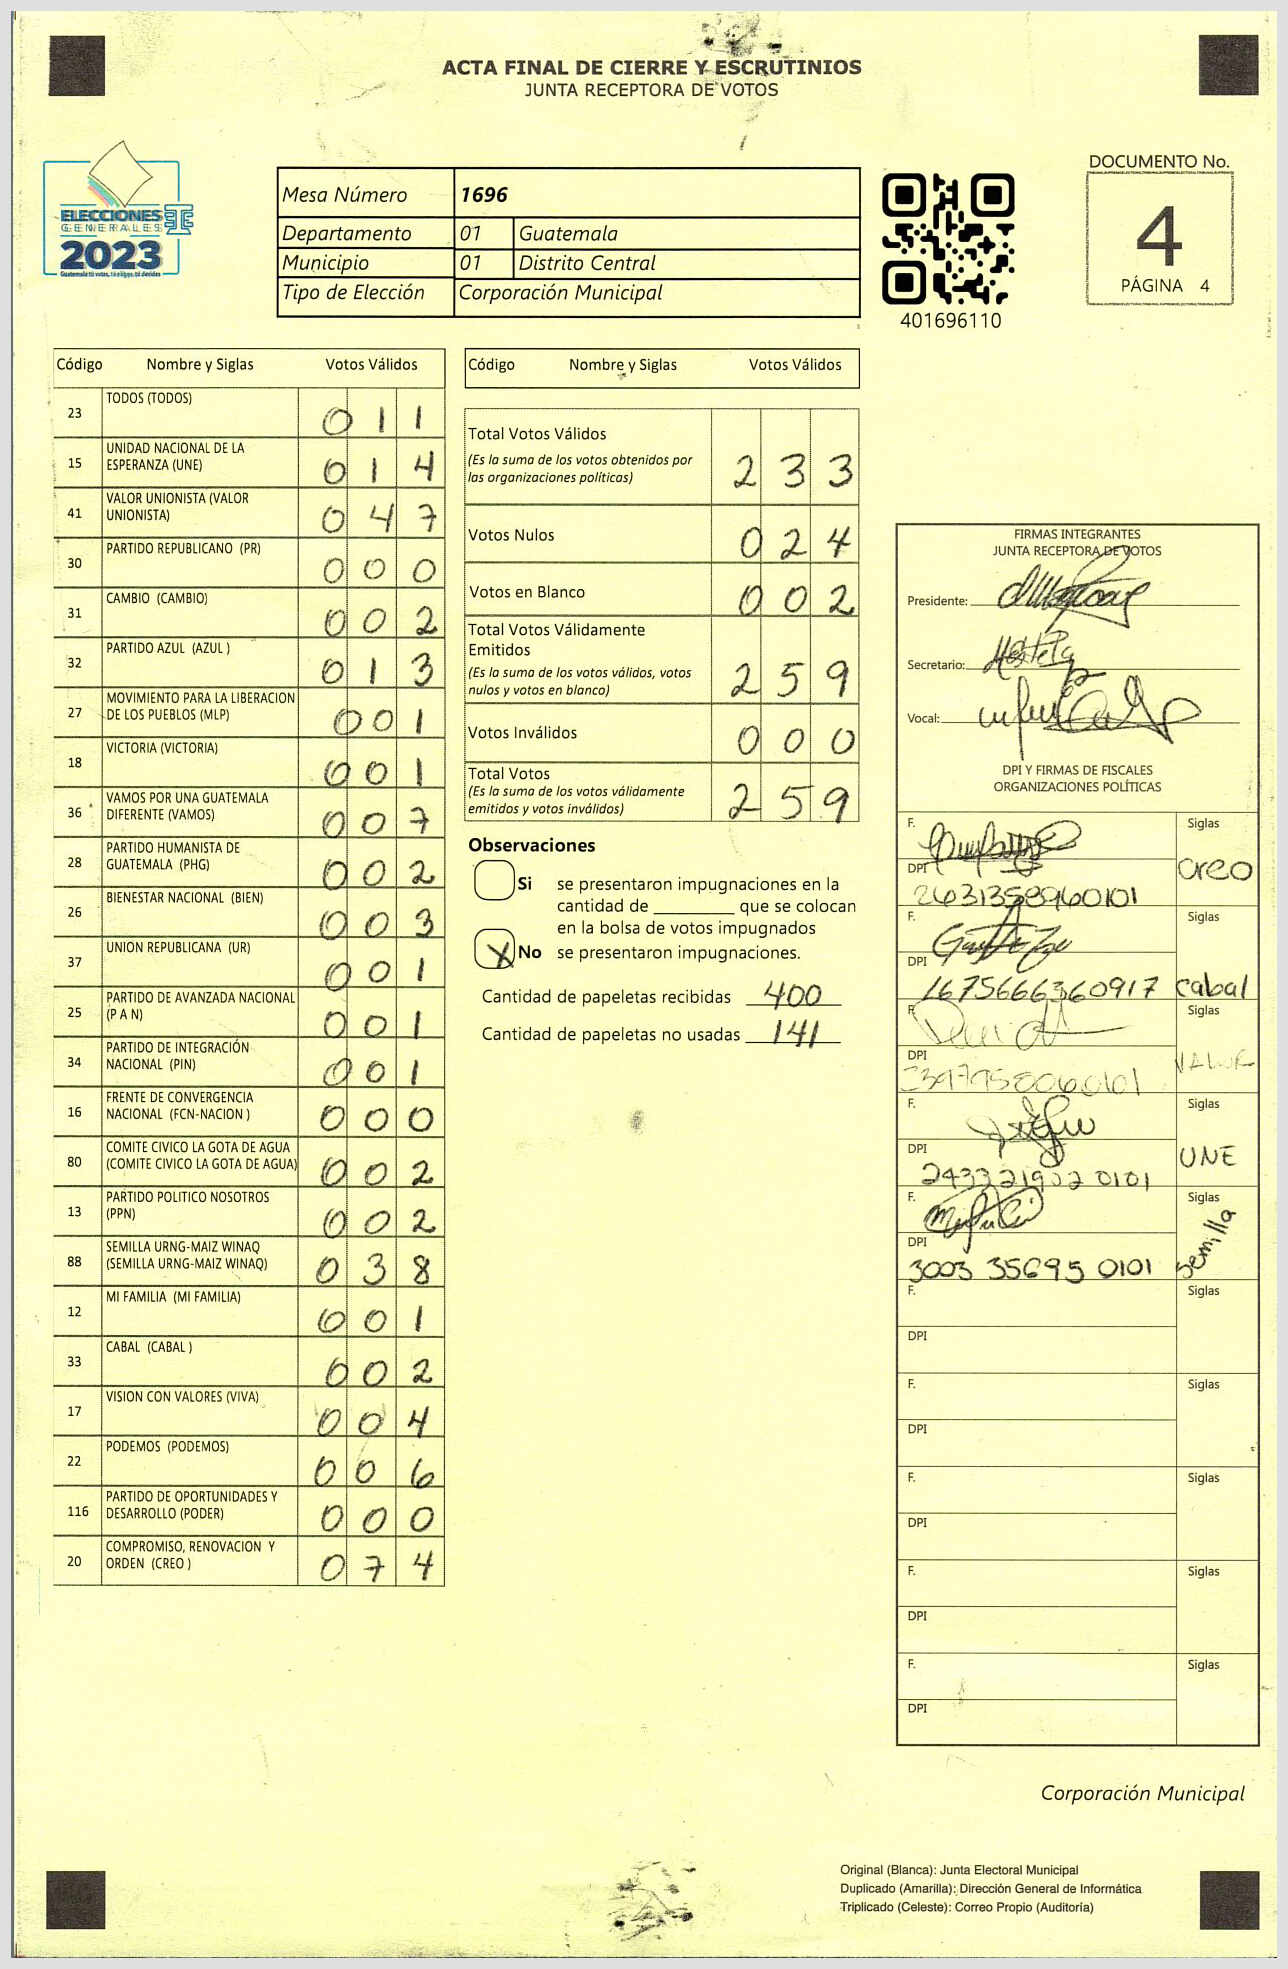 ACTA FINAL DE CIERRE Y ESCRUTINIOS
JUNTA RECEPTORA DE VOTOS
ELECCIONES
GENERALES
2023
Mesa Número 1696
Departamento 01 Guatemala
Municipio 01 Distrito Central
Tipo de Elección Corporación Municipal
401696110
DOCUMENTO No.
4
PÁGINA 4
Código Nombre y Siglas Votos Válidos
23 TODOS (TODOS) 011
15 UNIDAD NACIONAL DE LA
ESPERANZA (UNE) 014
41 VALOR UNIONISTA (VALOR
UNIONISTA) 047
30 PARTIDO REPUBLICANO (PR) 000
31 CAMBIO (CAMBIO) 002
32 PARTIDO AZUL (AZUL ) 013
27 MOVIMIENTO PARA LA LIBERACION
DE LOS PUEBLOS (MLP) 001
18 VICTORIA (VICTORIA) 001
36 VAMOS POR UNA GUATEMALA
DIFERENTE (VAMOS) 007
28 PARTIDO HUMANISTA DE
GUATEMALA (PHG) 002
26 BIENESTAR NACIONAL (BIEN) 003
37 UNION REPUBLICANA (UR) 001
25 PARTIDO DE AVANZADA NACIONAL
(P A N) 001
34 PARTIDO DE INTEGRACIÓN
NACIONAL (PIN) 001
16 FRENTE DE CONVERGENCIA
NACIONAL (FCN-NACION ) 000
80 COMITE CIVICO LA GOTA DE AGUA
(COMITE CIVICO LA GOTA DE AGUA) 002
13 PARTIDO POLITICO NOSOTROS
(PPN) 002
88 SEMILLA URNG-MAIZ WINAQ
(SEMILLA URNG-MAIZ WINAQ) 038
12 MI FAMILIA (MI FAMILIA) 001
33 CABAL (CABAL ) 002
17 VISION CON VALORES (VIVA) 004
22 PODEMOS (PODEMOS) 006
116 PARTIDO DE OPORTUNIDADES Y
DESARROLLO (PODER) 000
20 COMPROMISO, RENOVACION Y
ORDEN (CREO ) 074
Código Nombre y Siglas Votos Válidos
Total Votos Válidos
(Es la suma de los votos obtenidos por
las organizaciones políticas) 233
Votos Nulos 024
Votos en Blanco 002
Total Votos Válidamente
Emitidos
(Es la suma de los votos válidos, votos
nulos y votos en blanco) 259
Votos Inválidos 000
Total Votos
(Es la suma de los votos válidamente
emitidos y votos inválidos) 259
Observaciones
Si se presentaron impugnaciones en la
cantidad de ________ que se colocan
en la bolsa de votos impugnados
X No se presentaron impugnaciones.
Cantidad de papeletas recibidas 400
Cantidad de papeletas no usadas 141
FIRMAS INTEGRANTES
JUNTA RECEPTORA DE VOTOS
Presidente:
Secretario:
Vocal:
DPI Y FIRMAS DE FISCALES
ORGANIZACIONES POLÍTICAS
F. Siglas
DPI creo
2631358960101
F. Siglas
DPI
1675666360917 cabal
F. Siglas
DPI VALOR
F. Siglas
DPI UNE
2433219020101
F. Siglas
DPI semilla
3003 35695 0101
F. Siglas
DPI
F. Siglas
DPI
F. Siglas
DPI
F. Siglas
DPI
F. Siglas
DPI
Corporación Municipal
Original (Blanca): Junta Electoral Municipal
Duplicado (Amarilla): Dirección General de Informática
Triplicado (Celeste): Correo Propio (Auditoría)